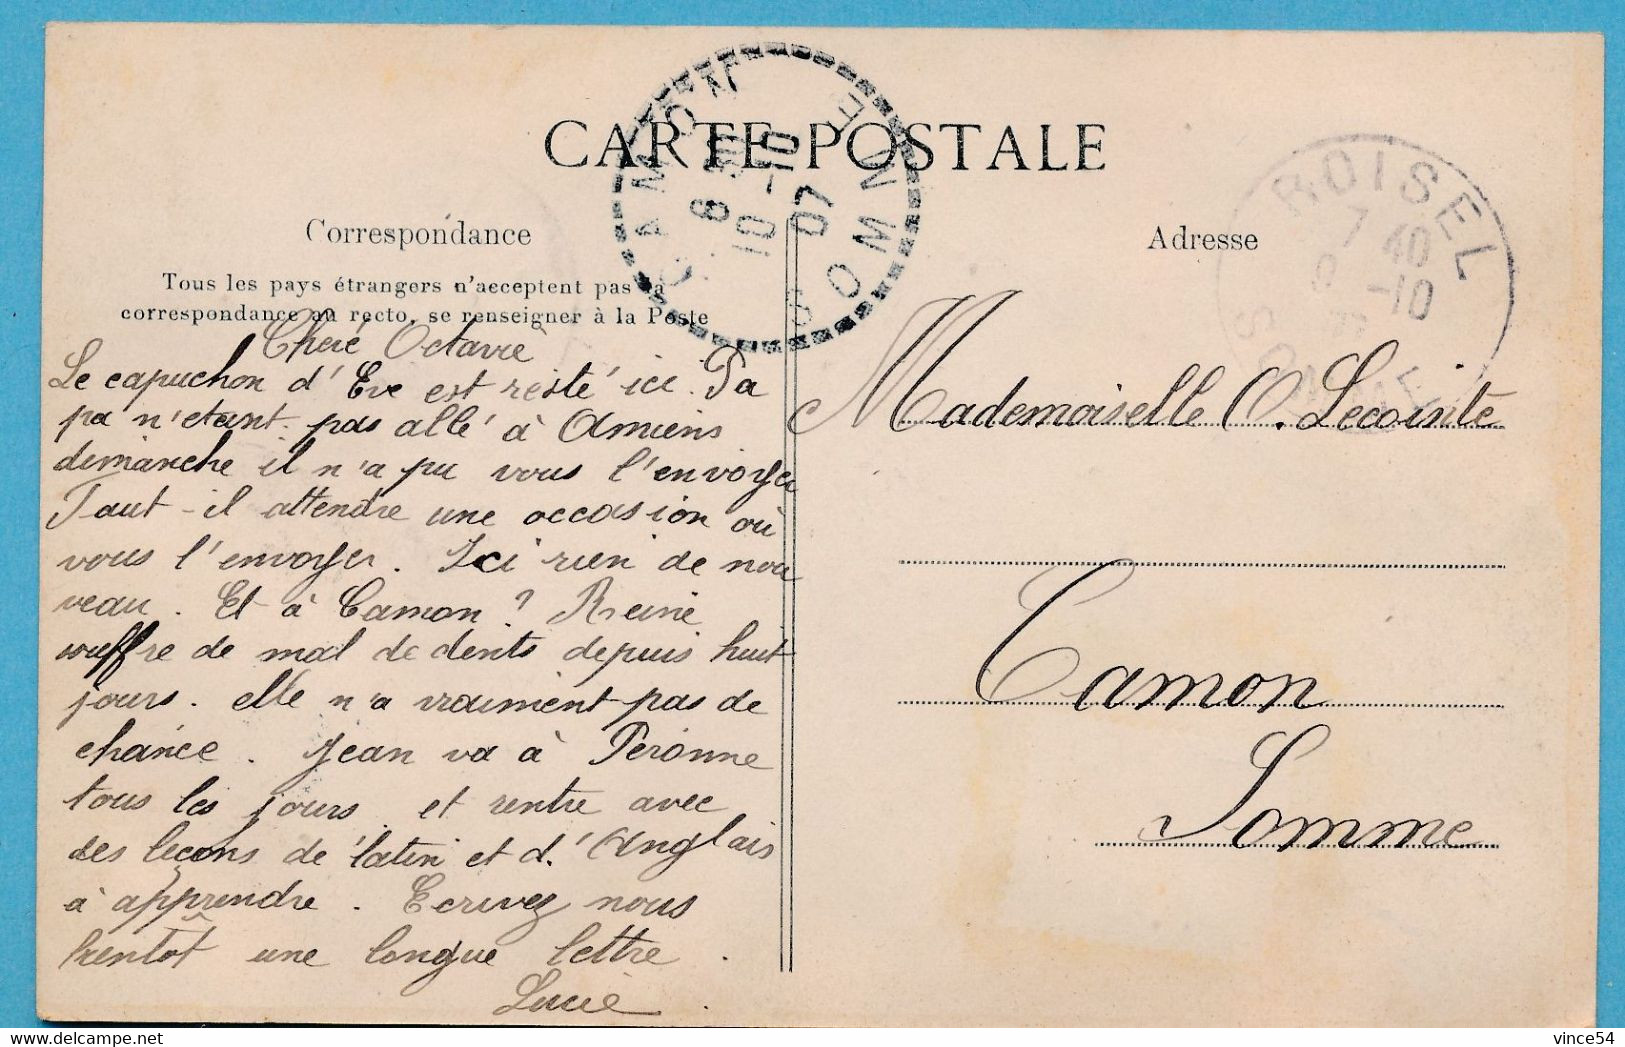 CARTE POSTALE
Correspondance
Tous les pays étrangers n'acceptent pas la
correspondance au recto, se renseigner à la Poste
Cheré Octavie
Le capuchon d'Eve est resté ici. Pa
pa n'étant pas allé à Amiens
dimanche il n'a pu vous l'envoyer
Faut-il attendre une occasion où
vous l'envoyer. Ici rien de nou
veau. Et à Camon ? Reine
souffre de mal de dents depuis huit
jours. elle n'a vraiment pas de
chance. Jean va à Peronne
tous les jours et rentre avec
des leçons de latin et d'Anglais
à apprendre. Ecrivez nous
bientôt une longue lettre.
Lucie.
Adresse
Mademoiselle O. Lecointe
Camon
Somme
CAMON
SOMME
8 30
10 -10
07
ROISEL
7 40
-10
SOMME
vince54